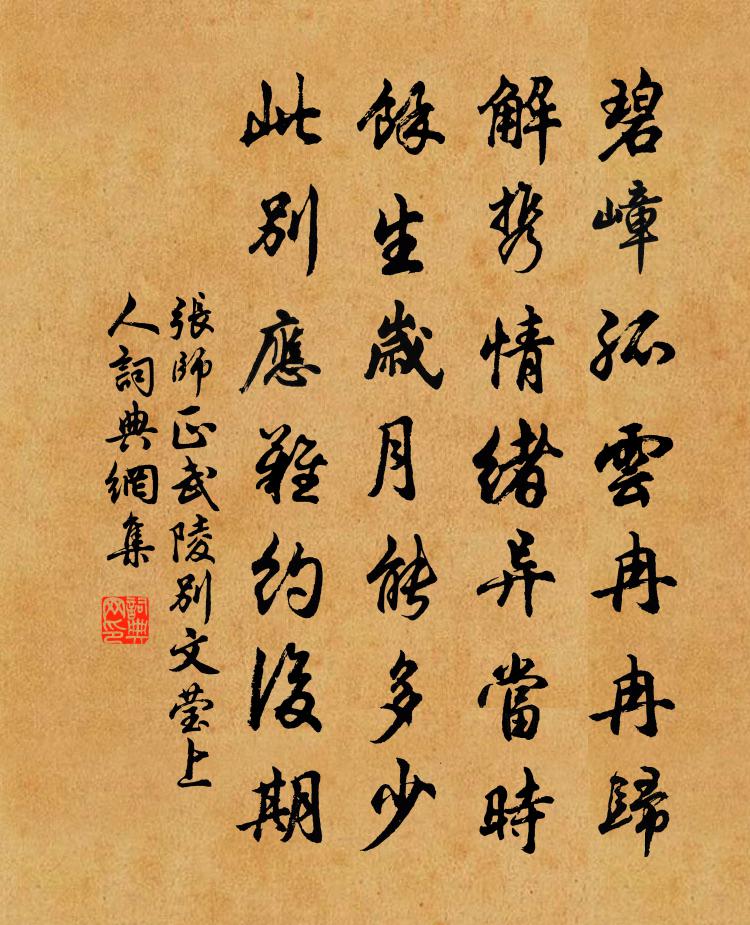 碧嶂孤雲冉冉歸
解携情緒异當時
餘生歲月能多少
此別應難約後期
張師正武陵別文瑩上
人詞典網集
詞典
网印